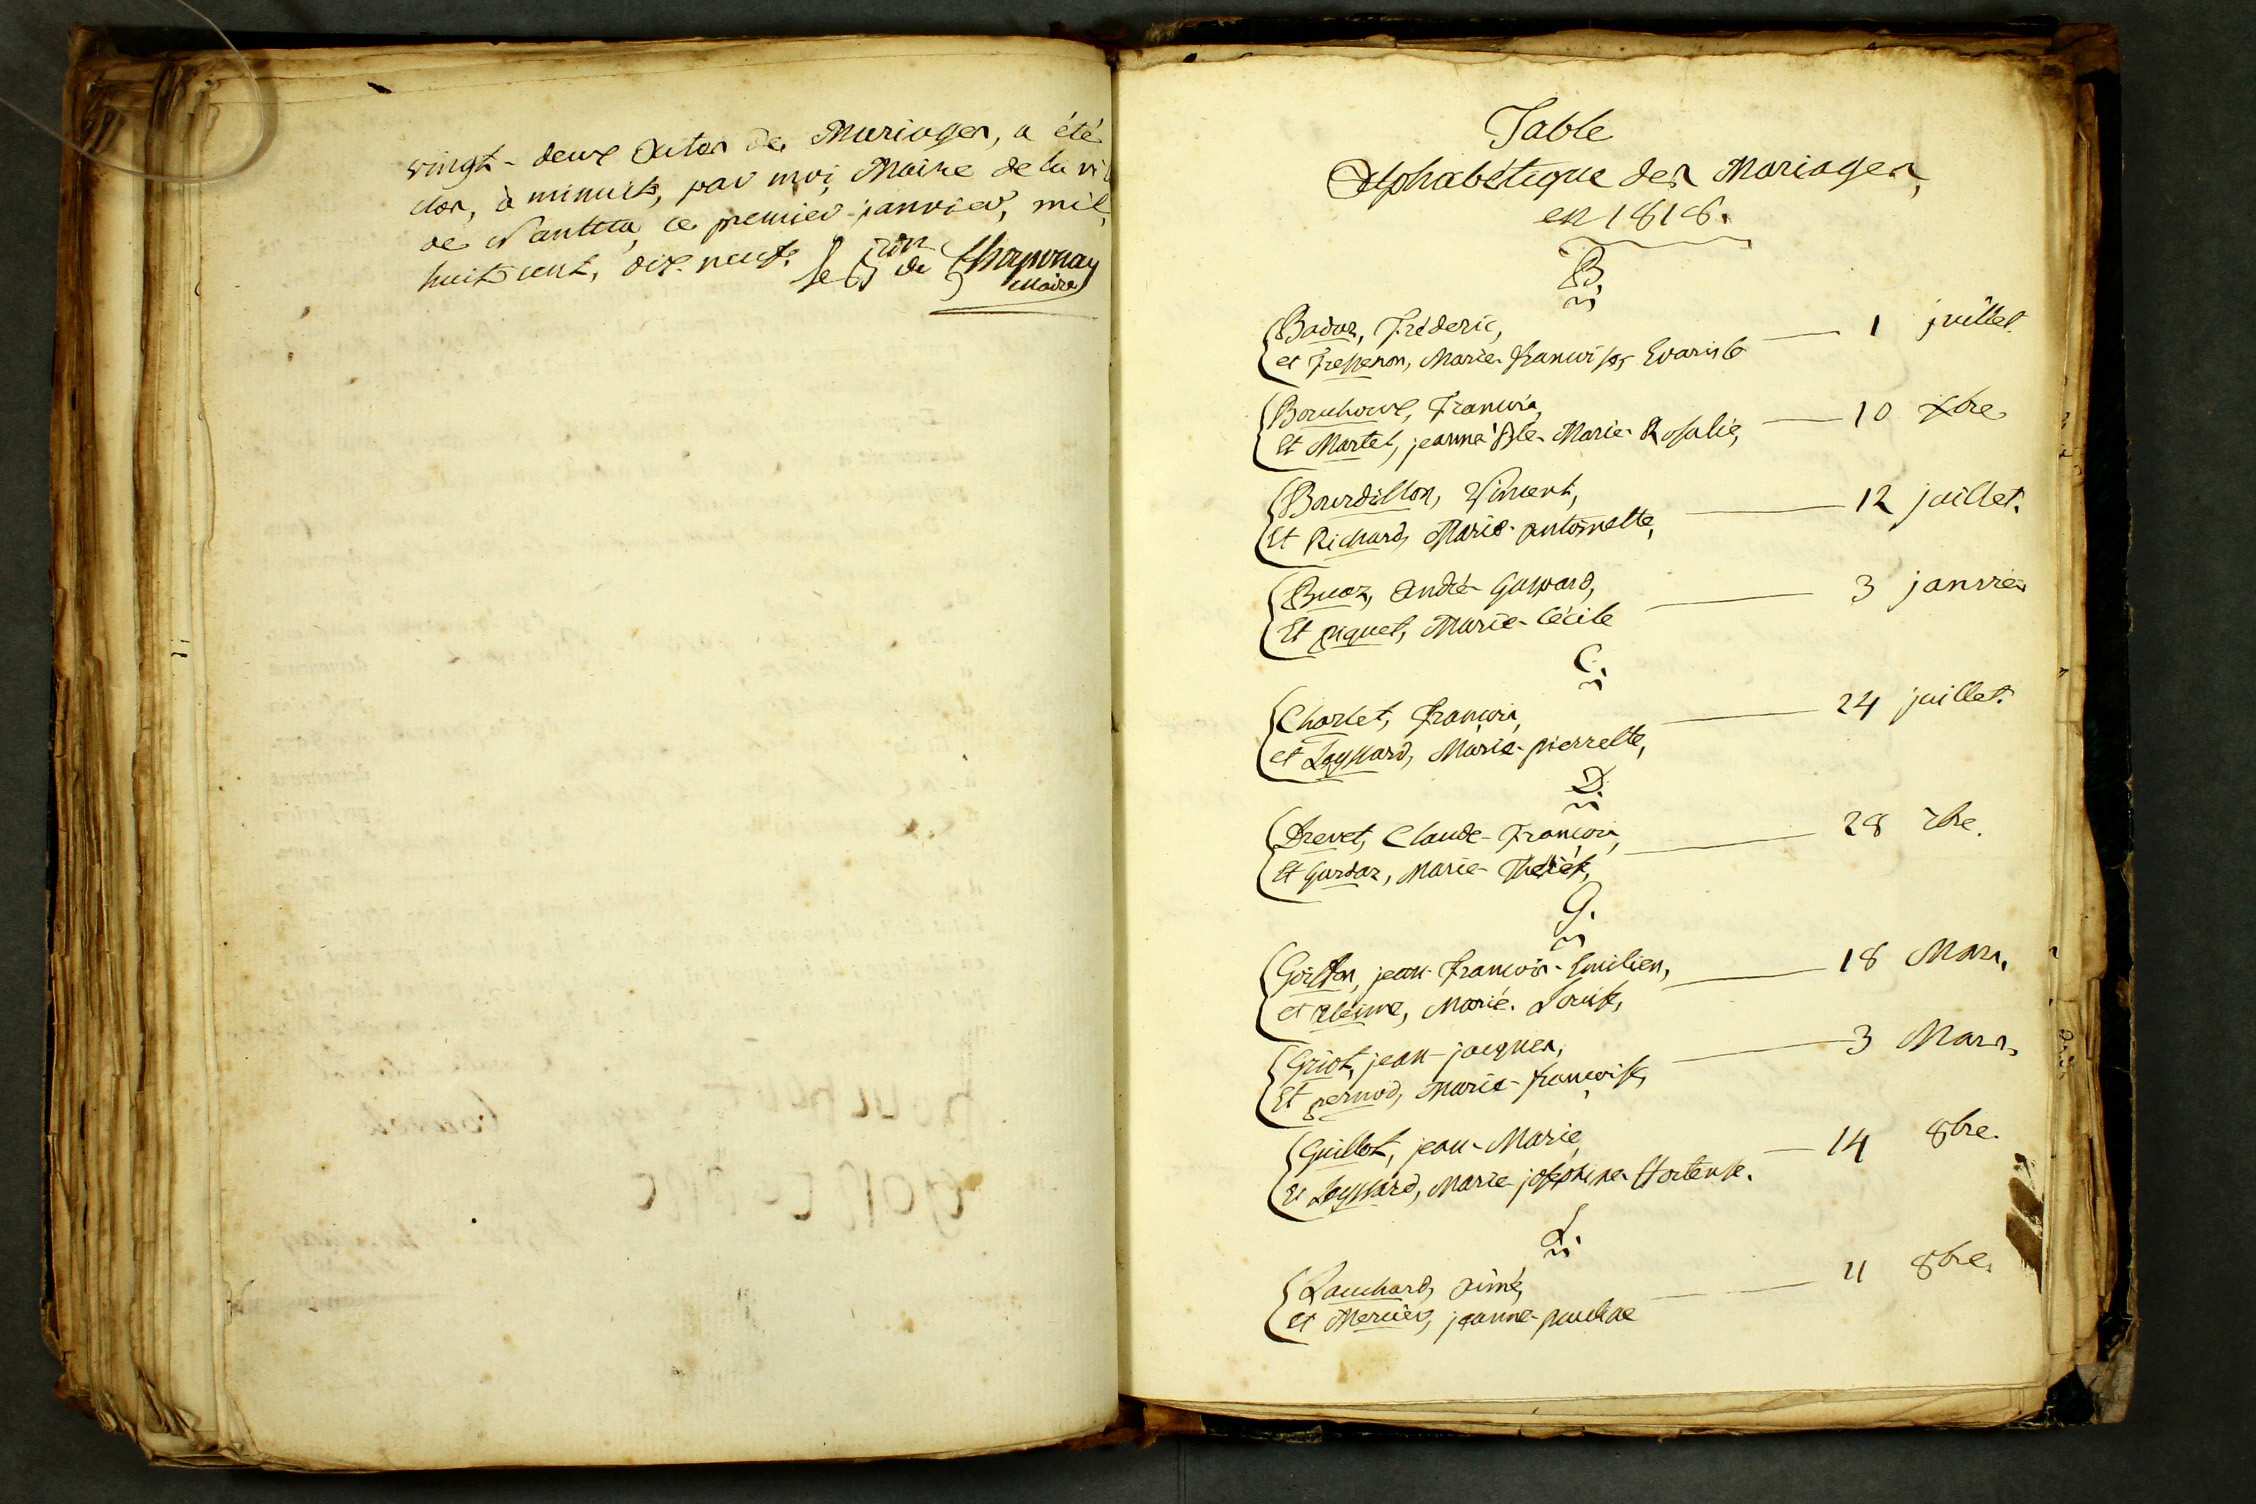 vingt-deux actes de Mariages, a été
clos, à minuit, par moi Maire de la vil
de Nantua, ce premier janvier, mil
huit cent, dix-neuf. Le Bon de Chaponay
Maire
Table
Alphabétique des Mariages,
en 1818.
B.
Badoz, Fréderic, 1 juillet.
et Marie-Françoise Evariste
François, 10 Xbre
Et Martel, jeanne Bte-Marie-Rosalie,
Bourdillon, Vincent, 12 juillet.
Et Richard, Marie-antoinette,
Buaz, André-Gaspard, 3 janvier
Et piquet, Marie-Cécile
C.
Charlet, françois, 24 juillet.
et Marie-pierrette,
D.
Drevet, Claude-François, 28 7bre.
Et Gurdaz, Marie-Thérèse,
G.
Goiffon, jean-François-Emilien, 18 Mars.
et aleine, Marie-Louise,
Griot, jean-jacques, 3 Mars.
Et pernod, Marie-françoise,
Guillot, jean-Marie, 14 8bre.
Et Marie-josephine-Hortense.
L.
Louchard, aimé, 11 8bre.
et Mercier, jeanne-pauline